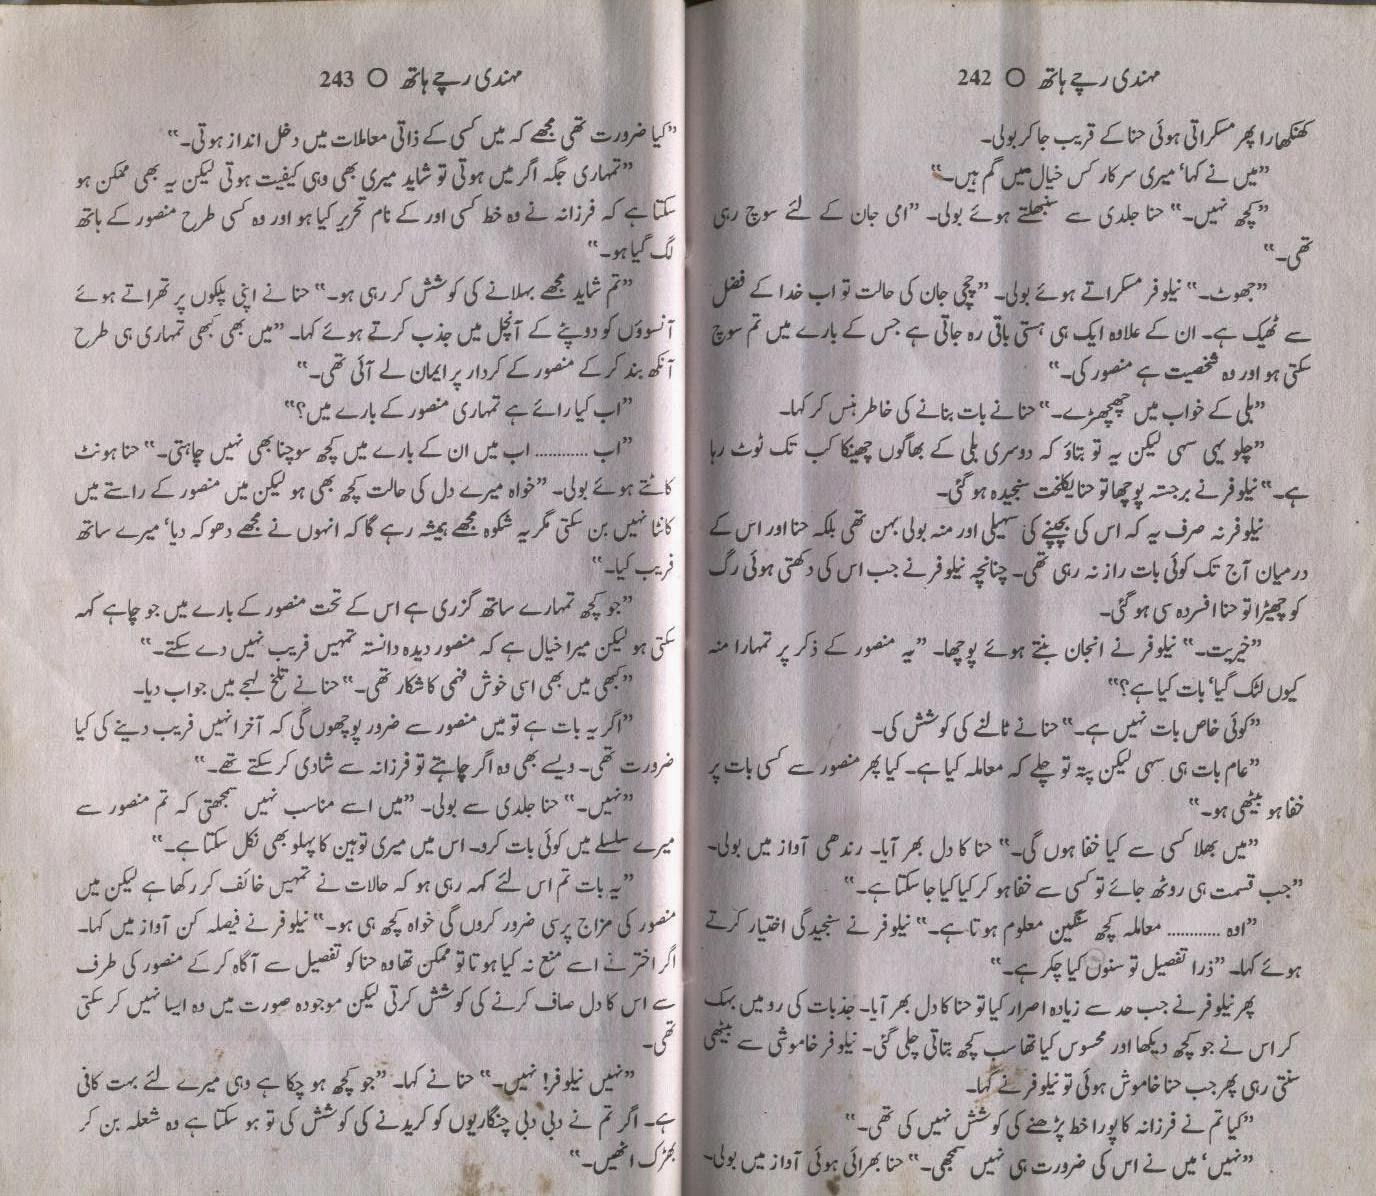 مہندی رچے ہاتھ O 242
کھنکھارا پھر مسکراتی ہوئی حنا کے قریب جا کر بولی۔
”میں نے کہا‘ میری سرکار کس خیال میں گم ہیں۔“
”کچھ نہیں۔“ حنا جلدی سے سنبھلتے ہوئے بولی۔ ”امی جان کے لئے سوچ رہی
تھی۔“
”جھوٹ۔“ نیلوفر مسکراتے ہوئے بولی۔ ”چچی جان کی حالت تو اب خدا کے فضل
سے ٹھیک ہے۔ ان کے علاوہ ایک ہی ہستی باقی رہ جاتی ہے جس کے بارے میں تم سوچ
سکتی ہو اور وہ شخصیت ہے منصور کی۔“
”بلی کے خواب میں چھیچھڑے۔“ حنا نے بات بنانے کی خاطر ہنس کر کہا۔
”چلو یہی سہی لیکن یہ تو بتاؤ کہ دوسری بلی کے بھاگوں چھینکا کب تک ٹوٹ رہا
ہے۔“ نیلوفر نے برجستہ پوچھا تو حنا یکلخت سنجیدہ ہو گئی۔
نیلوفر نہ صرف یہ کہ اس کی بچپنے کی سہیلی اور منہ بولی بہن تھی بلکہ حنا اور اس کے
درمیان آج تک کوئی بات راز نہ رہی تھی۔ چنانچہ نیلوفر نے جب اس کی دکھتی ہوئی رگ
کو چھیڑا تو حنا افسردہ سی ہو گئی۔
”خیریت۔“ نیلوفر نے انجان بنتے ہوئے پوچھا۔ ”یہ منصور کے ذکر پر تمہارا منہ
کیوں لٹک گیا‘ بات کیا ہے؟“
”کوئی خاص بات نہیں ہے۔“ حنا نے ٹالنے کی کوشش کی۔
”عام بات ہی سہی لیکن پتہ تو چلے کہ معاملہ کیا ہے۔ کیا پھر منصور سے کسی بات پر
خفا ہو بیٹھی ہو۔“
”میں بھلا کسی سے کیا خفا ہوں گی۔“ حنا کا دل بھر آیا۔ رندھی آواز میں بولی۔
”جب قسمت ہی روٹھ جائے تو کسی سے خفا ہو کر کیا کیا جا سکتا ہے۔“
”اوہ ............ معاملہ کچھ سنگین معلوم ہوتا ہے۔“ نیلوفر نے سنجیدگی اختیار کرتے
ہوئے کہا۔ ”ذرا تفصیل تو سنوں کیا چکر ہے۔“
پھر نیلوفر نے جب حد سے زیادہ اصرار کیا تو حنا کا دل بھر آیا۔ جذبات کی رو میں بہک
کر اس نے جو کچھ دیکھا اور محسوس کیا تھا سب کچھ بتاتی چلی گئی۔ نیلوفر خاموشی سے بیٹھی
سنتی رہی پھر جب حنا خاموش ہوئی تو نیلوفر نے کہا۔
”کیا تم نے فرزانہ کا پورا خط پڑھنے کی کوشش نہیں کی تھی۔“
”نہیں‘ میں نے اس کی ضرورت ہی نہیں سمجھی۔“ حنا بھرائی ہوئی آواز میں بولی۔
مہندی رچے ہاتھ O 243
”کیا ضرورت تھی مجھے کہ میں کسی کے ذاتی معاملات میں دخل انداز ہوتی۔“
”تمہاری جگہ اگر میں ہوتی تو شاید میری بھی وہی کیفیت ہوتی لیکن یہ بھی ممکن ہو
سکتا ہے کہ فرزانہ نے وہ خط کسی اور کے نام تحریر کیا ہو اور وہ کسی طرح منصور کے ہاتھ
لگ گیا ہو۔“
”تم شاید مجھے بہلانے کی کوشش کر رہی ہو۔“ حنا نے اپنی پلکوں پر تھراتے ہوئے
آنسوؤں کو دوپٹے کے آنچل میں جذب کرتے ہوئے کہا۔ ”میں بھی کبھی تمہاری ہی طرح
آنکھ بند کر کے منصور کے کردار پر ایمان لے آئی تھی۔“
”اب کیا رائے ہے تمہاری منصور کے بارے میں؟“
”اب ............ اب میں ان کے بارے میں کچھ سوچنا بھی نہیں چاہتی۔“ حنا ہونٹ
کاٹتے ہوئے بولی۔ ”خواہ میرے دل کی حالت کچھ بھی ہو لیکن میں منصور کے راستے میں
کانٹا نہیں بن سکتی مگر یہ شکوہ مجھے ہمیشہ رہے گا کہ انہوں نے مجھے دھوکہ دیا‘ میرے ساتھ
فریب کیا۔“
”جو کچھ تمہارے ساتھ گزری ہے اس کے تحت منصور کے بارے میں جو چاہے کہہ
سکتی ہو لیکن میرا خیال ہے کہ منصور دیدہ دانستہ تمہیں فریب نہیں دے سکتے۔“
”کبھی میں بھی اسی خوش فہمی کا شکار تھی۔“ حنا نے تلخ لہجے میں جواب دیا۔
”اگر یہ بات ہے تو میں منصور سے ضرور پوچھوں گی کہ آخر انہیں فریب دینے کی کیا
ضرورت تھی۔ ویسے بھی وہ اگر چاہتے تو فرزانہ سے شادی کر سکتے تھے۔“
”نہیں۔“ حنا جلدی سے بولی۔ ”میں اسے مناسب نہیں سمجھتی کہ تم منصور سے
میرے سلسلے میں کوئی بات کرو۔ اس میں میری توہین کا پہلو بھی نکل سکتا ہے۔“
”یہ بات تم اس لئے کہہ رہی ہو کہ حالات نے تمہیں خائف کر رکھا ہے لیکن میں
منصور کی مزاج پرسی ضرور کروں گی خواہ کچھ ہی ہو۔“ نیلوفر نے فیصلہ کن آواز میں کہا۔
اگر اختر نے اسے منع نہ کیا ہوتا تو ممکن تھا وہ حنا کو تفصیل سے آگاہ کر کے منصور کی طرف
سے اس کا دل صاف کرنے کی کوشش کرتی لیکن موجودہ صورت میں وہ ایسا نہیں کر سکتی
تھی۔
”نہیں نیلوفر! نہیں۔“ حنا نے کہا۔ ”جو کچھ ہو چکا ہے وہی میرے لئے بہت کافی
ہے۔ اگر تم نے دبی دبی چنگاریوں کو کریدنے کی کوشش کی تو ہو سکتا ہے وہ شعلہ بن کر
بھڑک اٹھیں۔“